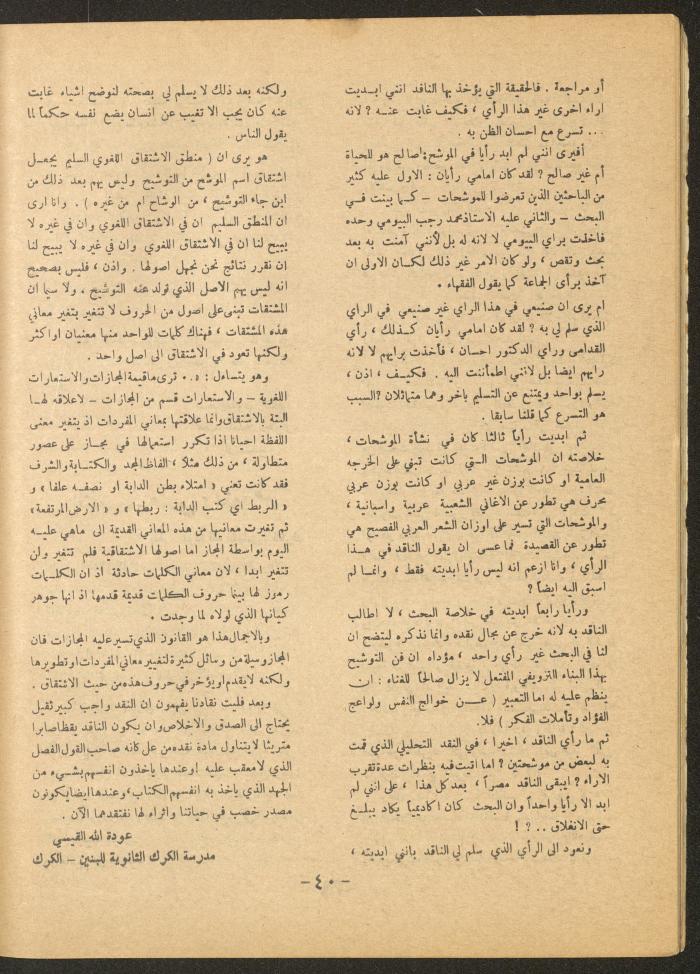 أو مراجعة . فالحقيقة التي يؤخذ بها الناقد انني ابديت
اراء اخرى غير هذا الرأي ، فكيف غابت عنه ? لانه
... تسرع مع احسان الظن به .
أفيرى انني لم ابد رأيا في الموشح:أصالح هو للحياة
أم غير صالح ? لقد كان امامي رأيان : الاول عليه كثير
من الباحثين الذين تعرضوا للموشحات – كما بينت في
البحث – والثاني عليه الاستاذ محمد رجب البيومي وحده
فاخذت براي البيومي لا لانه له بل لأنني آمنت به بعد
بحث وتقص ، ولو كان الامر غير ذلك لكان الاولى ان
آخذ برأى الجماعة كما يقول الفقهاء .
ام يرى ان صنيعي في هذا الراي غير صنيعي في الراي
الذي سلم لي به ? لقد كان امامي رأيان كذلك ، رأي
القدامى وراي الدكتور احسان ، فأخذت برايهم لا لانه
رايهم ايضا بل لانني اطمأننت اليه . فكيف ، اذن ،
يسلم بواحد ويمتنع عن التسليم باخر وهما متماثلان ?السبب
هو التسرع كما قلنا سابقا .
ثم ابديت رأياً ثالثا كان في نشأة الموشحات ،
خلاصته ان الموشحات التي كانت تبنى على الخرجه
العامية او كانت بوزن غير عربي او كانت بوزن عربي
محرف هي تطور عن الأغاني الشعبية عربية واسبانية ،
والموشحات التي تسير على اوزان الشعر العربي الفصيح هي
تطور عن القصيدة فما عسى ان يقول الناقد في هذا
الرأي ، وانا ازعم انه ليس رأيا ابديته فقط ، وانما لم
اسبق اليه ايضاً ?
ورأيا رابعاً ابديته في خلاصة البحث ، لا اطالب
الناقد به لانه خرج عن مجال نقده وانما نذكره ليتضح ان
لنا في البحث غير رأي واحد ، مؤداه ان فن التوشيح
بهذا البناء التزويقي المفتعل لا يزال صالحاً للغناء : ان
ينظم عليه له اما التعبير ( عن خوالج النفس ولواعج
الفؤاد وتأملات الفكر ) فلا.
ثم ما رأي الناقد ، اخيرا ، في النقد التحليلي الذي قمت
به لبعض من موشحتين ? اما اتيت فيه بنظرات عدة تقرب
الاراء ? ايبقى الناقد مصراً ، بعد كل هذا ، على انني لم
ابد الا رأيا واحداً وان البحث كان اكاديمياً يكاد يبلغ
حتى الانغلاق .. ? !
ونعود الى الرأي الذي سلم لي الناقد بانني ابديته ،
ولكنه بعد ذلك لا يسلم لي بصحته لنوضح اشياء غابت
عنه كان يجب الا تغيب عن انسان يضع نفسه حكماً لما
يقول الناس .
هو يرى ان ( منطق الاشتقاق اللغوي السليم يجعل
اشتقاق اسم الموشح من التوشيح وليس يهم بعد ذلك من
اين جاء التوشيح ، من الوشاح ام من غيره ) . وانا ارى
ان المنطق السليم ان في الاشتقاق اللغوي وان في غيره لا
يبيح لنا ان في الاشتقاق اللغوي وان في غيره لا يبيح لنا
ان نقرر نتائج نحن نجهل اصولها . واذن ، فليس بصحيح
انه ليس يهم الاصل الذي تولد عنه التوشيح ، ولا سيما ان
المشتقات تبنى على اصول من الحروف لا تتغير بتغير معاني
هذه المشتقات ، فهناك كلمات للواحد منها معنيان او اكثر
ولكنها تعود في الاشتقاق الى اصل واحد .
وهو يتساءل : «.. ترى ما قيمة المجازات والاستعارات
اللغوية – والاستعارات قسم من المجازات – لا علاقة لها
البتة بالاشتقاق وانما علاقتها بمعاني المفردات اذ يتغير معنى
اللفظة احيانا اذا تكرر استعمالها في مجاز على عصور
متطاولة ، من ذلك مثلاً ، الفاظ المجد والكتابة والشرف
فقد كانت تعني « امتلاء بطن الدابة او نصفه علفا » و
« الربط اي كتب الدابة : ربطها » و « الارض المرتفعة»
ثم تغيرت معانيها من هذه المعاني القديمة الى ماهي عليه
اليوم بواسطة المجاز اما اصولها الاشتقاقية فلم تتغير ولن
تتغير ابدا ، لان معاني الكلمات حادثة اذ ان الكلمات
رموز لها بينما حروف الكلمات قديمة قدمها اذ انها جوهر
كيانها الذي لولاه لما وجدت .
وبالاجمال هذا هو القانون الذي تسير عليه المجازات فان
المجاز وسيلة من وسائل كثيرة لتغيير معاني المفردات او تطويرها
ولكنه لا يقدم او يؤخر في حروف هذه من حيث الاشتقاق .
وبعد فليت نقادنا يفهمون ان النقد واجب كبير ثقيل
يحتاج الى الصدق والاخلاص وان يكون الناقد يقظا صابرا
متريثا لا يتناول مادة نقده من عل كانه صاحب القول الفصل
الذي لا معقب عليه ! وعندها ياخذون انفسهم بشيء من
الجهد الذي ياخذ به انفسهم الكتاب ، وعندها ايضا يكونون
مصدر خصب في حياتنا واثراء لها نفتقدهما الآن .
عودة الله القيسي
مدرسة الكرك الثانوية للبنين – الكرك
– ٤٠ –